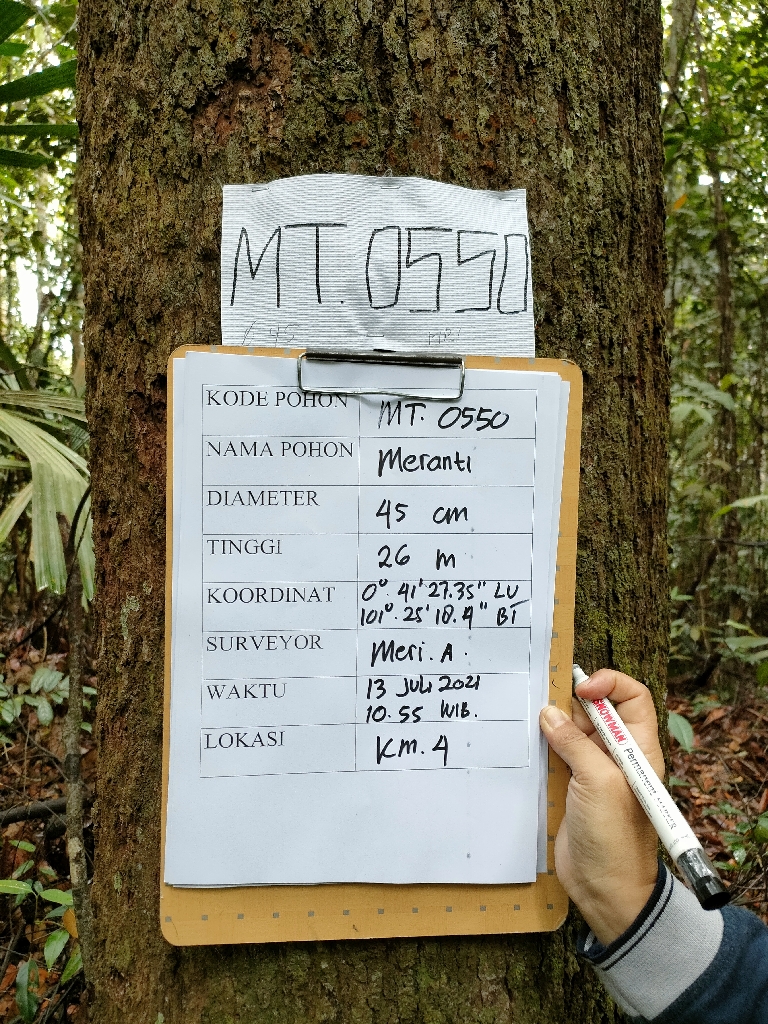 MT. 0550
KODE POHON MT. 0550
NAMA POHON Meranti
DIAMETER 45 cm
TINGGI 26 m
KOORDINAT 0°. 41' 27.35" LU
101°. 25' 18.4" BT
SURVEYOR Meri. A.
WAKTU 13 Juli 2021
10.55 WIB.
LOKASI Km. 4
SNOWMAN Permanent MARKER